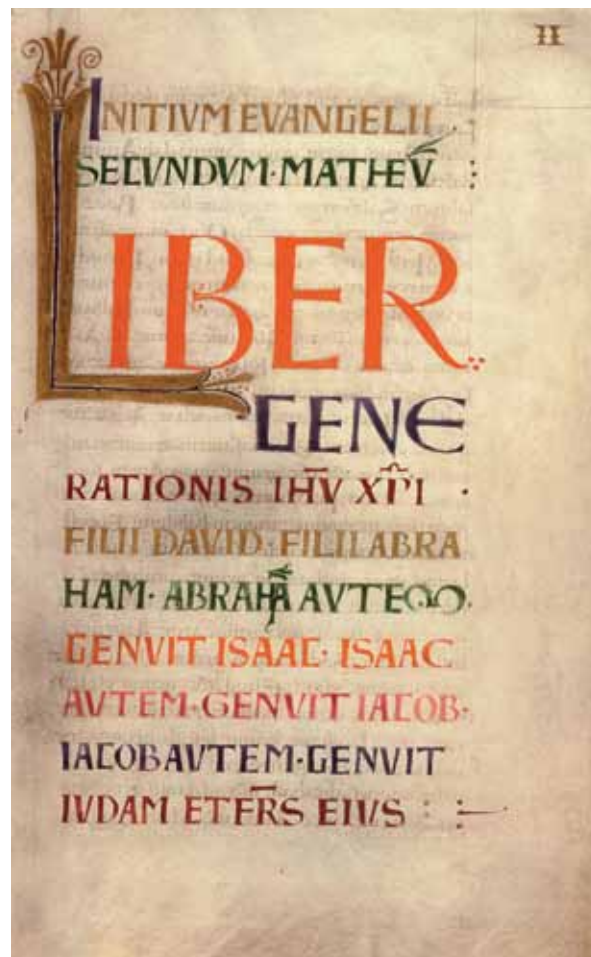 II
INITIVM EVANGELII
SECVNDVM·MATHEV̅ :
LIBER
GENE
RATIONIS IH̅V XP̅I ·
FILII DAVID·FILII ABRA
HAM· ABRAHĀ AVTEM·
GENVIT ISAAC· ISAAC
AVTEM·GENVIT IACOB·
IACOB AVTEM·GENVIT
IVDAM ET FR̅S EIVS :